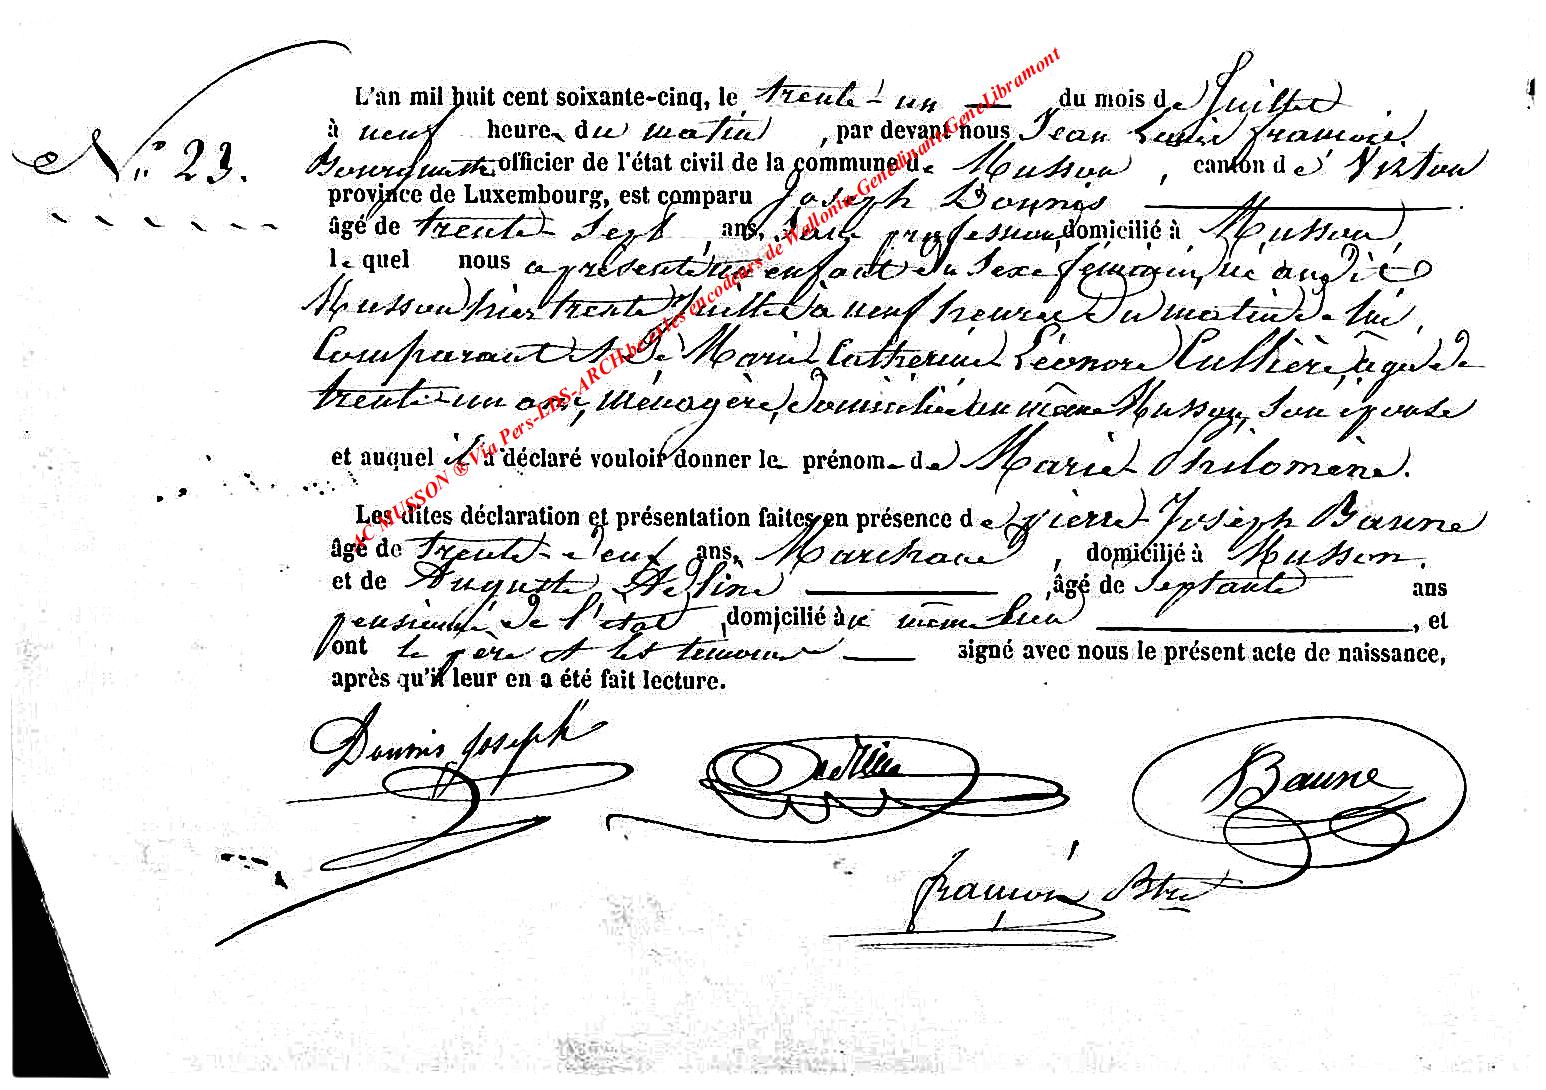 N° 23.
L'an mil huit cent soixante-cinq, le trente-un du mois de Juillet
à neuf heures du matin, par devant nous Jean Louis François
Bourgmestre officier de l'état civil de la commune de Musson, canton de Virton
province de Luxembourg, est comparu Joseph Dounis
âgé de trente-sept ans, sans profession, domicilié à Musson,
lequel nous a présenté un enfant du sexe féminin, né audit
Musson hier trente Juillet à neuf heures du matin de lui
Comparant et de Marie Catherine Léonore Cullière, âgée de
trente-un ans, ménagère, domiciliée au même Musson, son épouse
et auquel il a déclaré vouloir donner le prénom de Marie-Philomène.
Les dites déclaration et présentation faites en présence de Pierre-Joseph Baune
âgé de trente-deux ans, Marchand, domicilié à Musson.
et de Auguste âgé de Septante ans
pensionné de l'état, domicilié à u même lieu, et
ont le père et les témoins signé avec nous le présent acte de naissance,
après qu'il leur en a été fait lecture.
Dounis Joseph
Baune
François Btre
AC MUSSON ® Via Pers-LDS-ARCH.be et les encodeurs de Wallonia-Genedinant-GeneLibramont